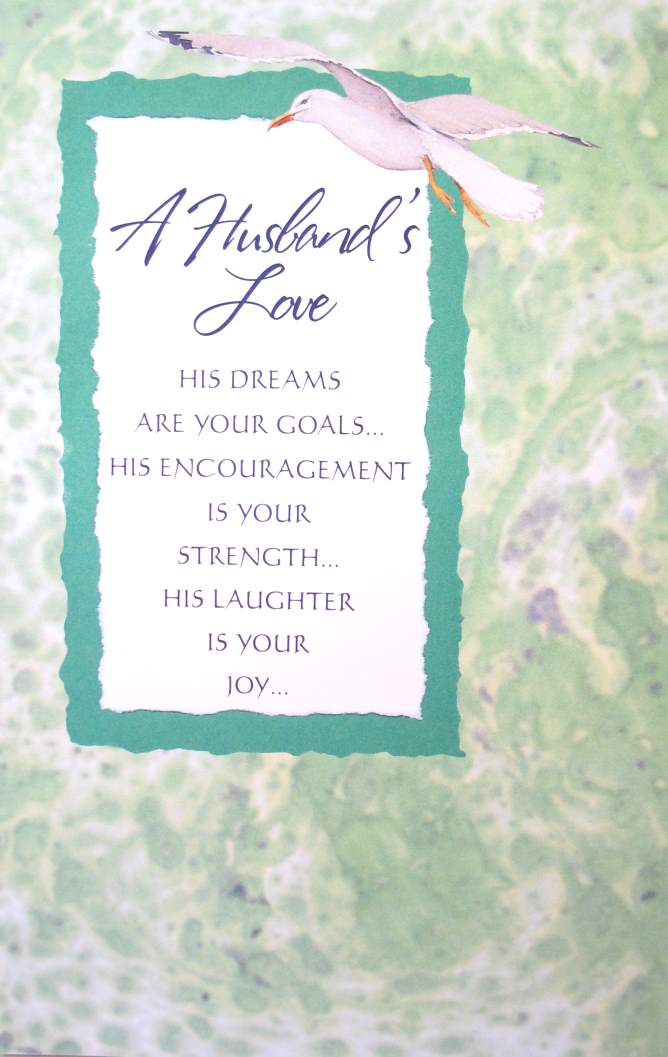 A Husband's
Love
HIS DREAMS
ARE YOUR GOALS...
HIS ENCOURAGEMENT
IS YOUR
STRENGTH...
HIS LAUGHTER
IS YOUR
JOY...